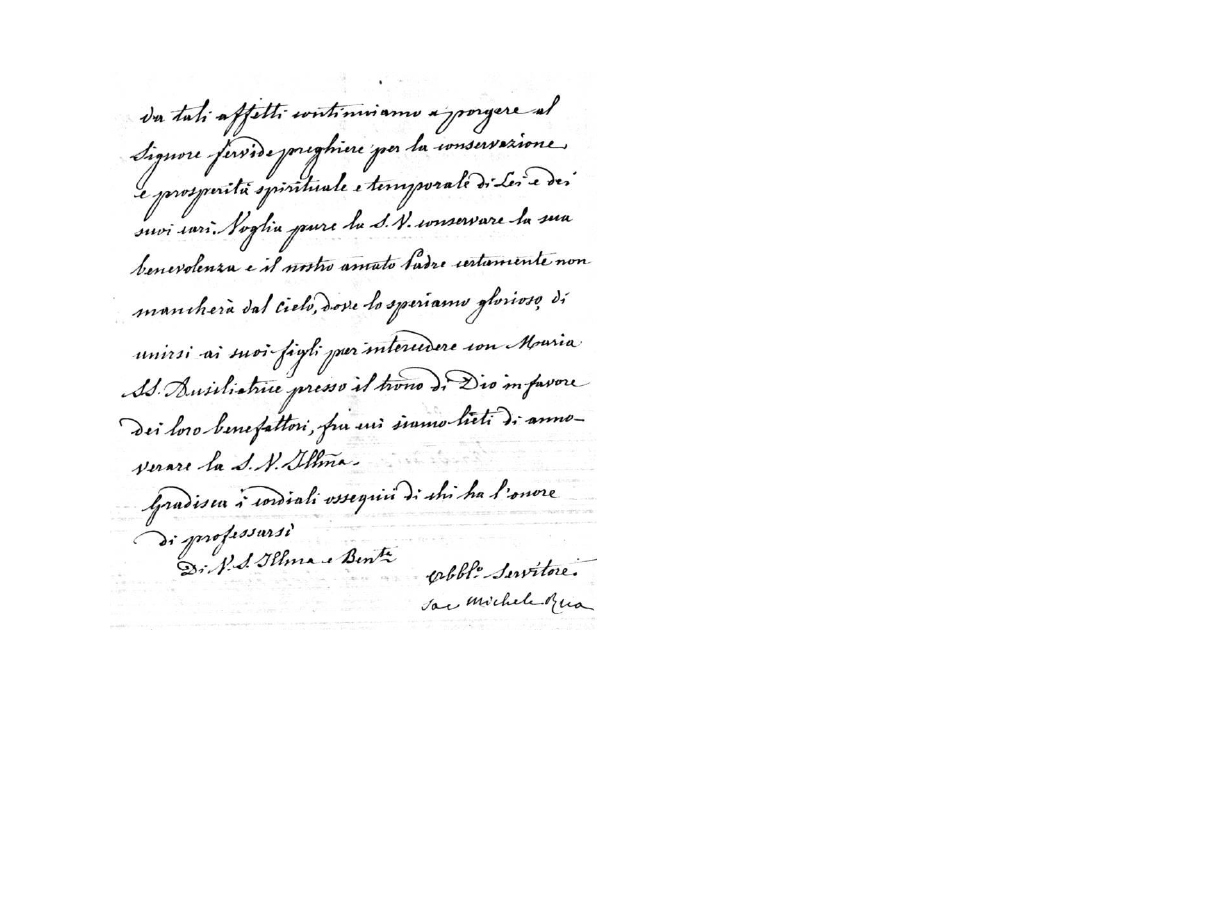 da tali affetti continuiamo a porgere al
Signore fervide preghiere per la conservazione
e prosperità spirituale e temporale di Lei e dei
suoi cari. Voglia pure la S. V. conservare la sua
benevolenza e il nostro amato Padre certamente non
mancherà dal Cielo, dove lo speriamo glorioso, di
unirsi ai suoi figli per intercedere con Maria
SS. Ausiliatrice presso il trono di Dio in favore
dei loro benefattori, fra cui siamo lieti di anno-
verare la S. V. Illma.
Gradisca i cordiali ossequii di chi ha l'onore
di professarsi
Di V. S. Illma e Bentа
Obblo Servitore
Sac Michele Rua